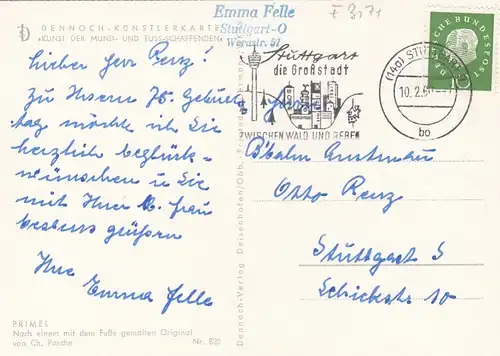 DENNOCH-KÜNSTLERKARTE
»KUNST DER MUND- UND FUSS-SCHAFFENDEN«
Emma Felle
Stuttgart-O
Werastr. 57
Lieber Herr Renz!
Zu Ihrem 75. Geburts
tag möchte ich Sie
herzlich beglück-
wünschen u Sie
mit Ihrer lb. Frau
bestens grüßen
Ihre
Emma Felle
PRIMEL
Nach einem mit dem Fuße gemalten Original
von Ch. Pasche
Nr. 820
Dennoch-Verlag Deisenhofen/Obb.
Stuttgart
die Großstadt
ZWISCHEN WALD UND REBEN
(14a) STUTTGART
10.2.6
bo
DEUTSCHE BUNDESPOST
B'bahn Amtmann
Otto Renz
Stuttgart S
Schickstr 10